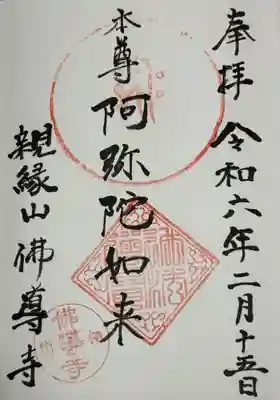 奉拝 令和六年二月十五日
本尊 阿弥陀如来
親縁山 佛尊寺